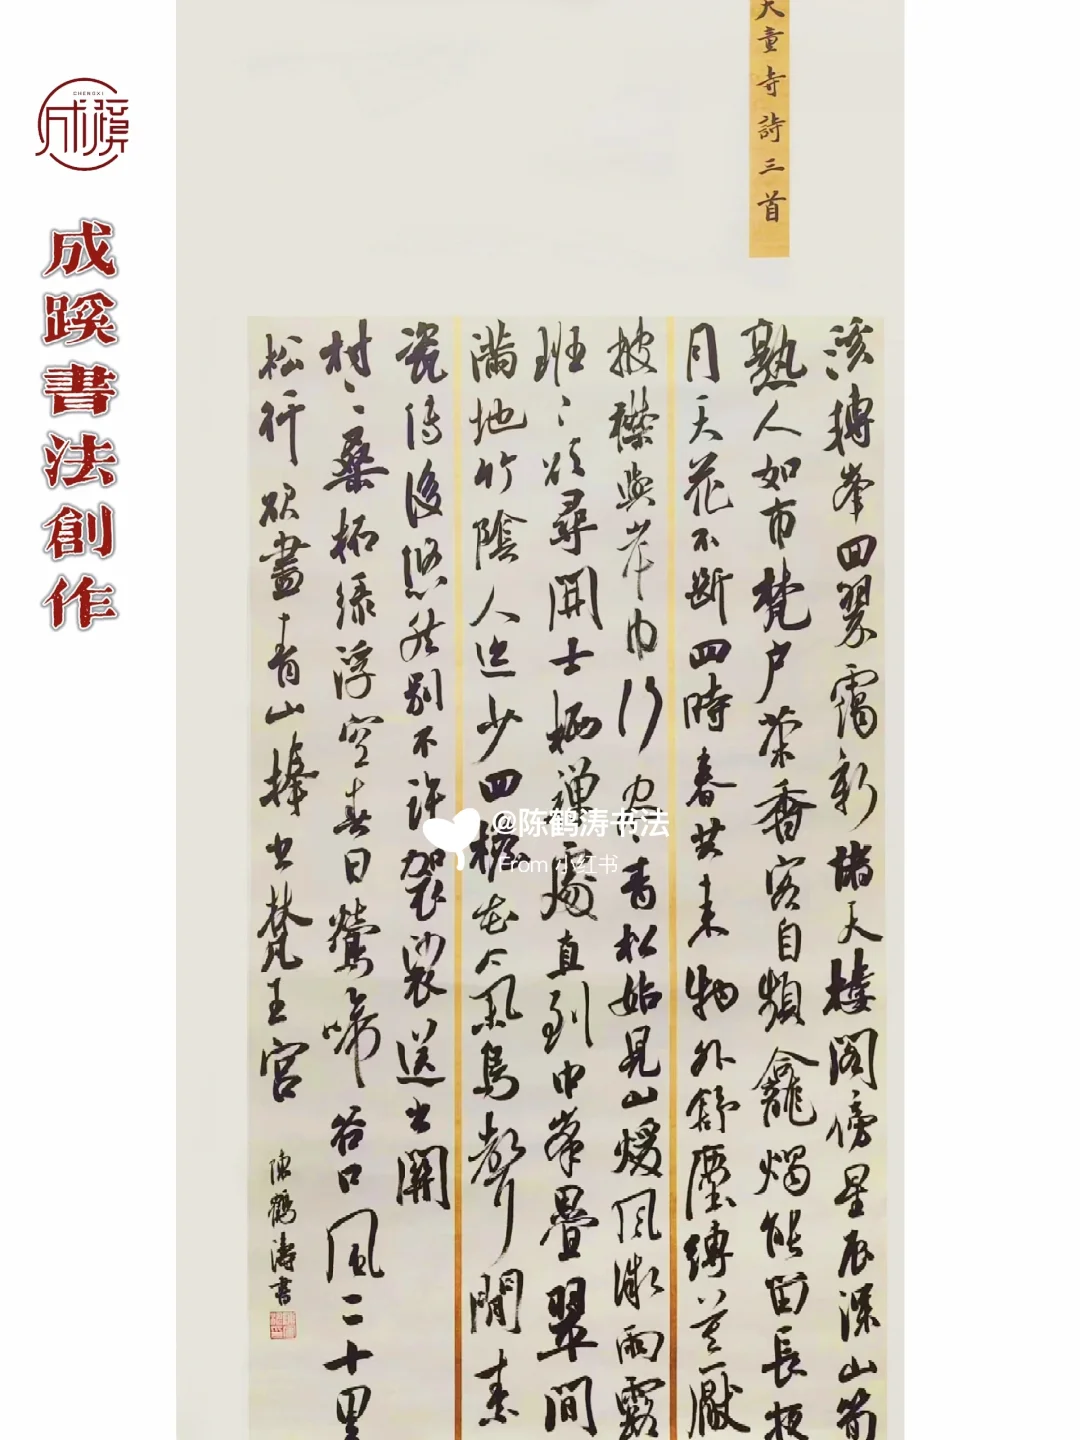 天童寺詩三首
溪轉峯回翠靄新諸天樓閣傍星辰深山筍
熟人如市梵户茶香客自頻龕燭能留長
月天花不斷四時春共來物外舒塵縛莫厭
披襟與岸巾行盡青松始見山煖風微雨露
班〻欲尋開士栖禪處直到中峯疊翠間
滿地竹陰人迹少四檐花氣鳥聲閒素
瓷傳後悠然別不許袈裟送出關
村〻桑柘綠浮空春日鶯啼谷口風二十里
松行欲盡青山捧出梵王宮
陳鶴濤書
CHENGXI
成蹊
成蹊書法創作
@陈鹤涛书法
From 小红书